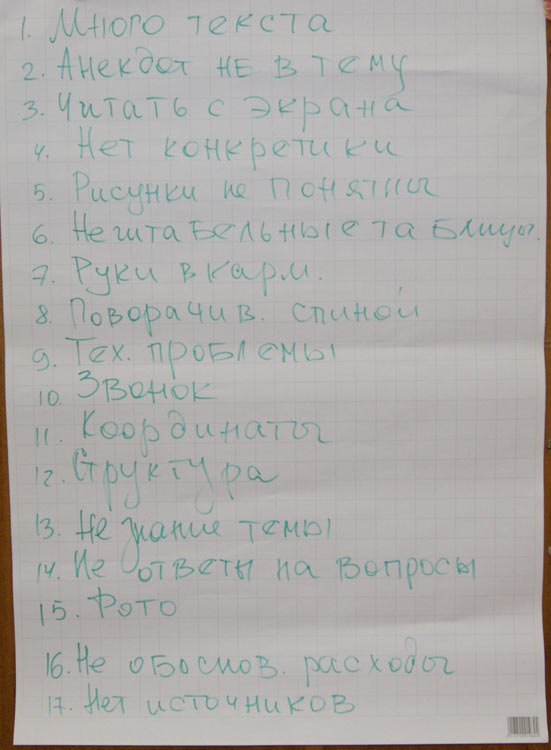 1. Много текста
2. Анекдот не в тему
3. Читать с экрана
4. Нет конкретики
5. Рисунки не понятны
6. Не читабельные таблицы.
7. Руки в карм.
8. Поворачив. спиной
9. Тех. проблемы
10. Звонок
11. Координаты
12. Структура
13. Не знание темы
14. Не ответы на вопросы
15. Фото
16. Не обоснов. расходы
17. Нет источников